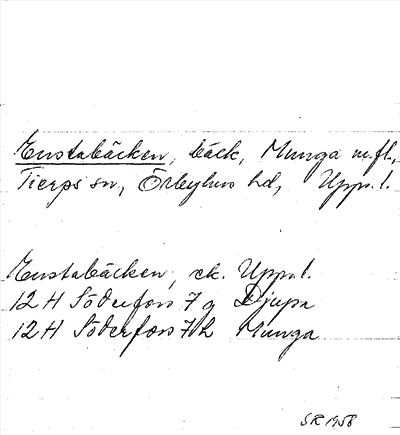 Enstabäcken, bäck, Munga m.fl.,
Tierps sn, Örbyhus hd, Uppl.
Enstabäcken, ek. Uppl.
12 H Söderfors 7 g Djupa
12 H Söderfors 7 h Munga
SR 1958